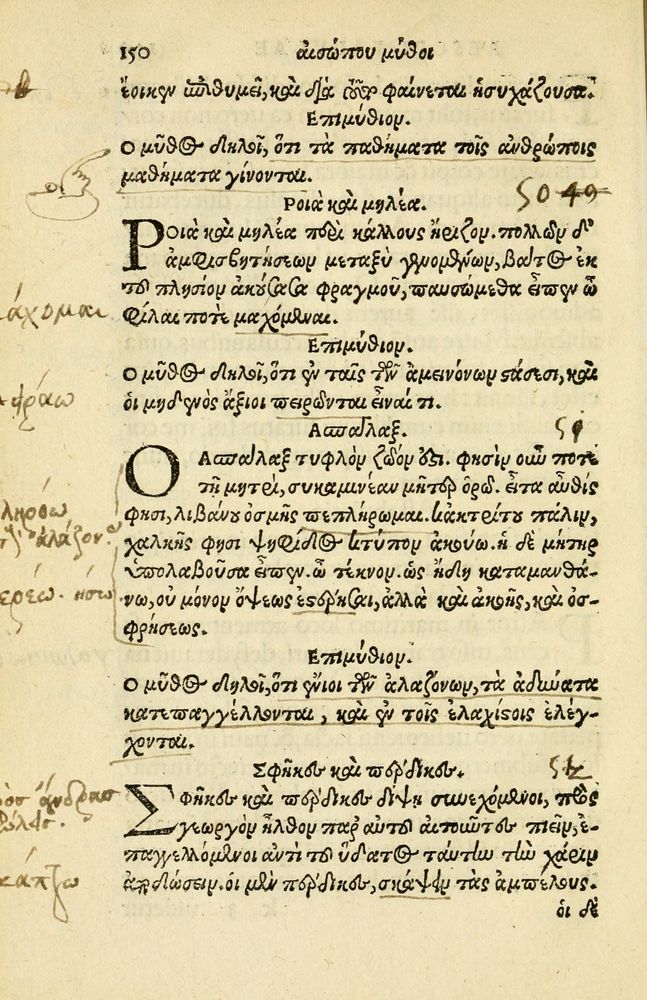 150 αἰσώπου μῦθοι
ἔοικεν ἐπιθυμεῖ, καὶ διὰ φαίνεται ἡσυχάζουσα.
Επιμύθιον.
Ο μῦθος δηλοῖ, ὅτι τὰ παθήματα τοῖς ἀνθρώποις
μαθήματα γίνονται.
50 49
Ροιὰ καὶ μηλέα.
Ροιὰ καὶ μηλέα περὶ κάλλους ἤριζον. πολλῶν δ'
ἀμφισβητήσεων μεταξὺ γενομένων, βάτος ἐκ
τοῦ πλησίον ἀκούσασα φραγμοῦ, παυσώμεθα εἶπεν ὦ
φίλαι ποτὲ μαχόμεναι.
άχομαι
Επιμύθιον.
Ο μῦθος δηλοῖ, ὅτι ἐν ταῖς τῶν ἀμεινόνων στάσεσι, καὶ
οἱ μηδενὸς ἄξιοι πειρῶνται εἶναί τι.
Ασπάλαξ.
51
Ο Ασπάλαξ τυφλὸν ζῶόν ἐστι. φησὶν οὖν ποτὲ
τῇ μητρὶ, συκαμινέαν μῆτερ ὁρῶ. εἶτα αὖθις
φησὶ, λιβάνου ὀσμῆς πεπλήρωμαι. κἀκ τρίτου πάλιν,
χαλκῆς φησι ψηφῖδος κτύπον ἀκούω. ἡ δὲ μήτηρ
ὑπολαβοῦσα εἶπεν. ὦ τέκνον. ὡς ἤδη καταμανθά-
νω, οὐ μόνον ὄψεως ἐστέρησαι, ἀλλὰ καὶ ἀκοῆς, καὶ ὀσ-
φρήσεως.
Επιμύθιον.
Ο μῦθος δηλοῖ, ὅτι ἔνιοι τῶν ἀλαζόνων, τὰ ἀδύνατα
κατεπαγγέλλονται, καὶ ἐν τοῖς ἐλαχίστοις ἐλέγ-
χονται.
Σφῆκες καὶ πέρδικες.
52
Σφῆκες καὶ πέρδικες δίψῃ συνεχόμενοι, πρὸς
γεωργὸν ἦλθον παρ' αὐτοῦ αἰτοῦντες πιεῖν, ἐ-
παγγελλόμενοι ἀντὶ τοῦ ὕδατος ταύτην τὴν χάριν
ἀποδώσειν. οἱ μὲν πέρδικες, σκάψειν τὰς ἀμπέλους.
κάπτω
οἱ δὲ